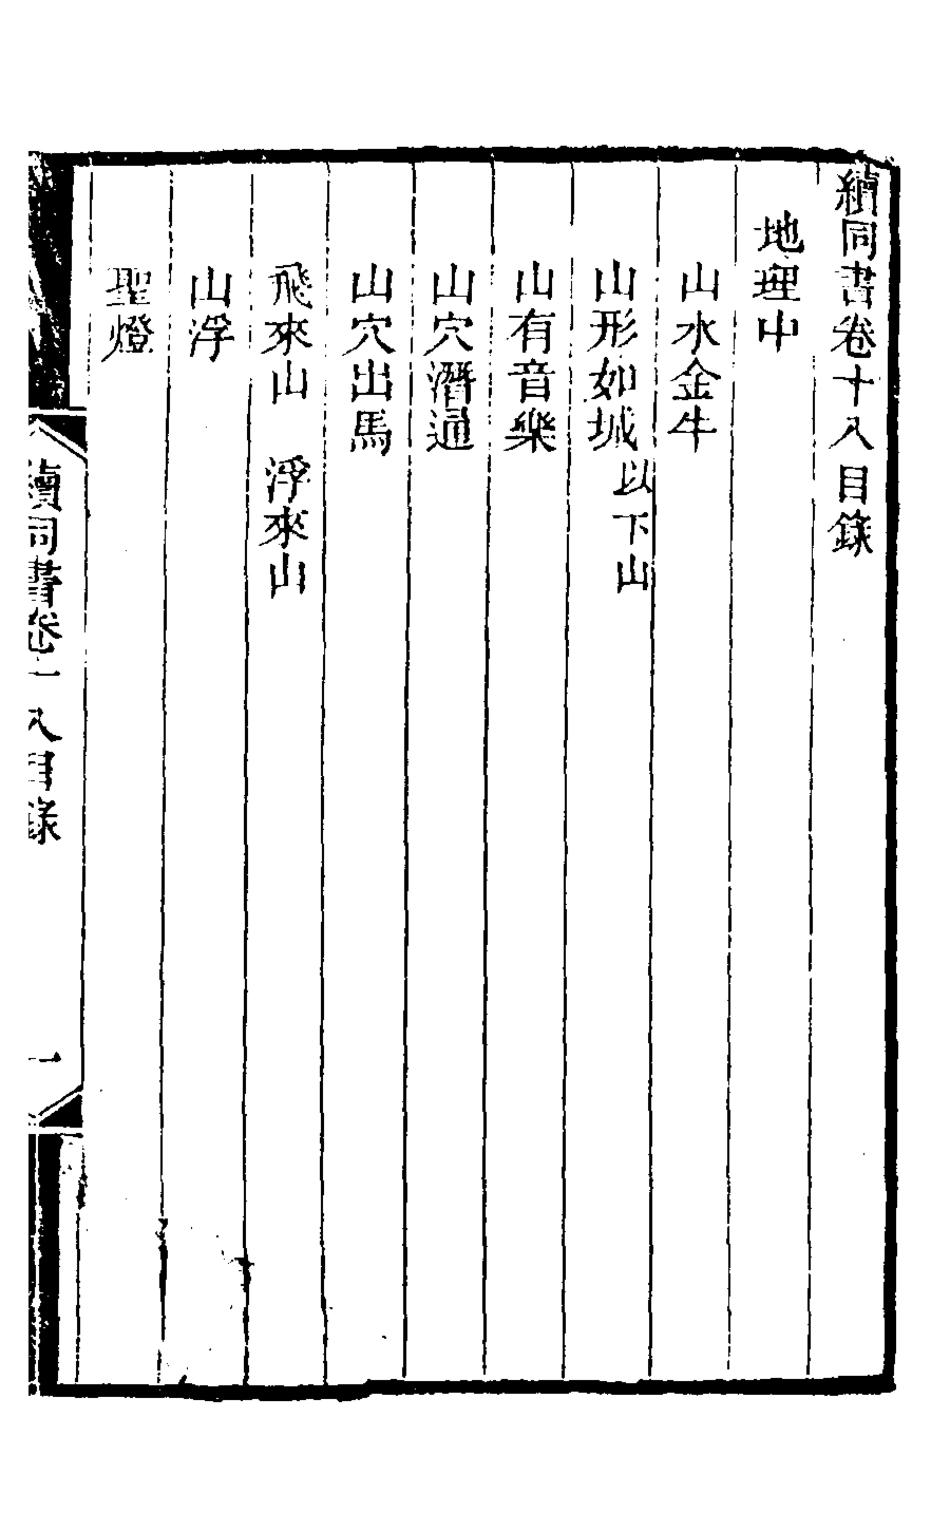 續同書卷十八目錄
地理中
山水金牛
山形如城以下山
山有音樂
山穴潛通
山穴出馬
飛來山 浮來山
山浮
聖燈
續同書卷十八目錄
一